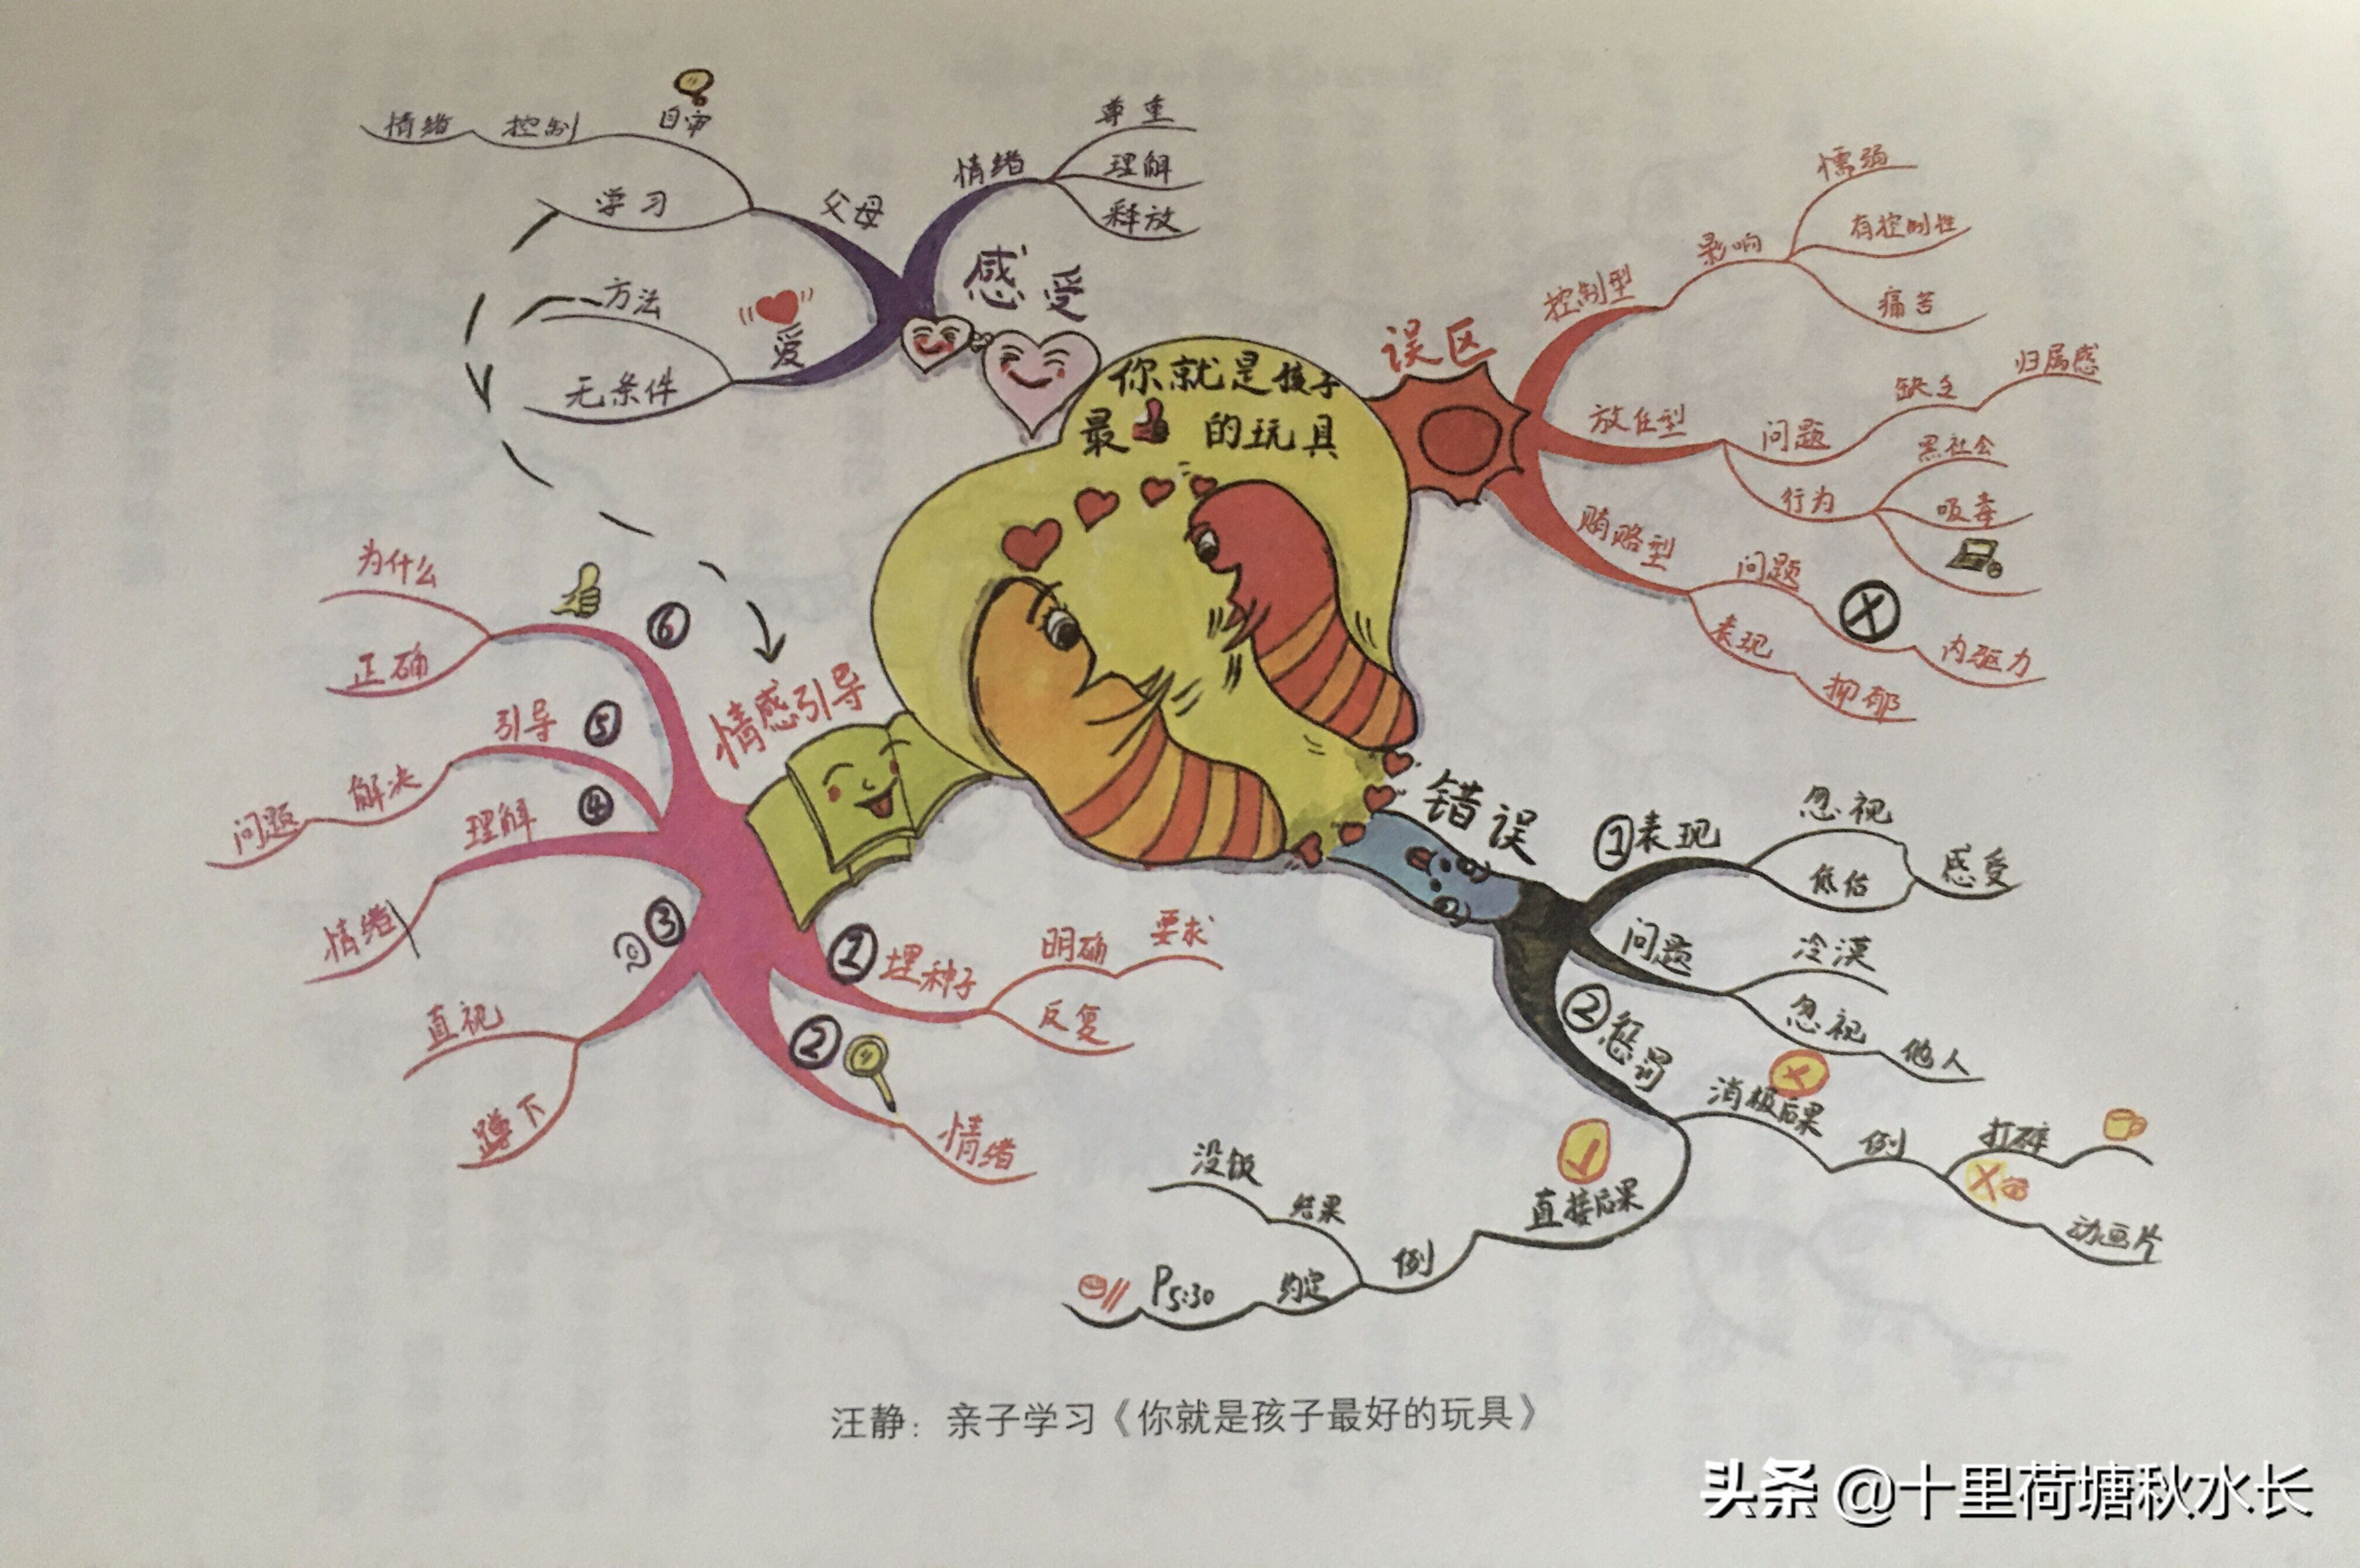 你就是孩子
最的玩具
误区
控制型
影响
懦弱
有控制性
痛苦
放任型
问题
缺乏
归属感
行为
黑社会
吸毒
贿赂型
问题
内驱力
表现
抑郁
错误
①表现
忽视
低估
感受
问题
冷漠
忽视
他人
②惩罚
消极后果
例
打碎
动画片
直接后果
例
结果
没饭
约定
P5:30
情感引导
①埋种子
明确
要求
反复
②
情绪
③
直视
蹲下
④
理解
情绪
⑤
引导
解决
问题
⑥
为什么
正确
感受
情绪
尊重
理解
释放
父母
自审
控制
情绪
学习
爱
方法
无条件
汪静：亲子学习《你就是孩子最好的玩具》
头条 @十里荷塘秋水长